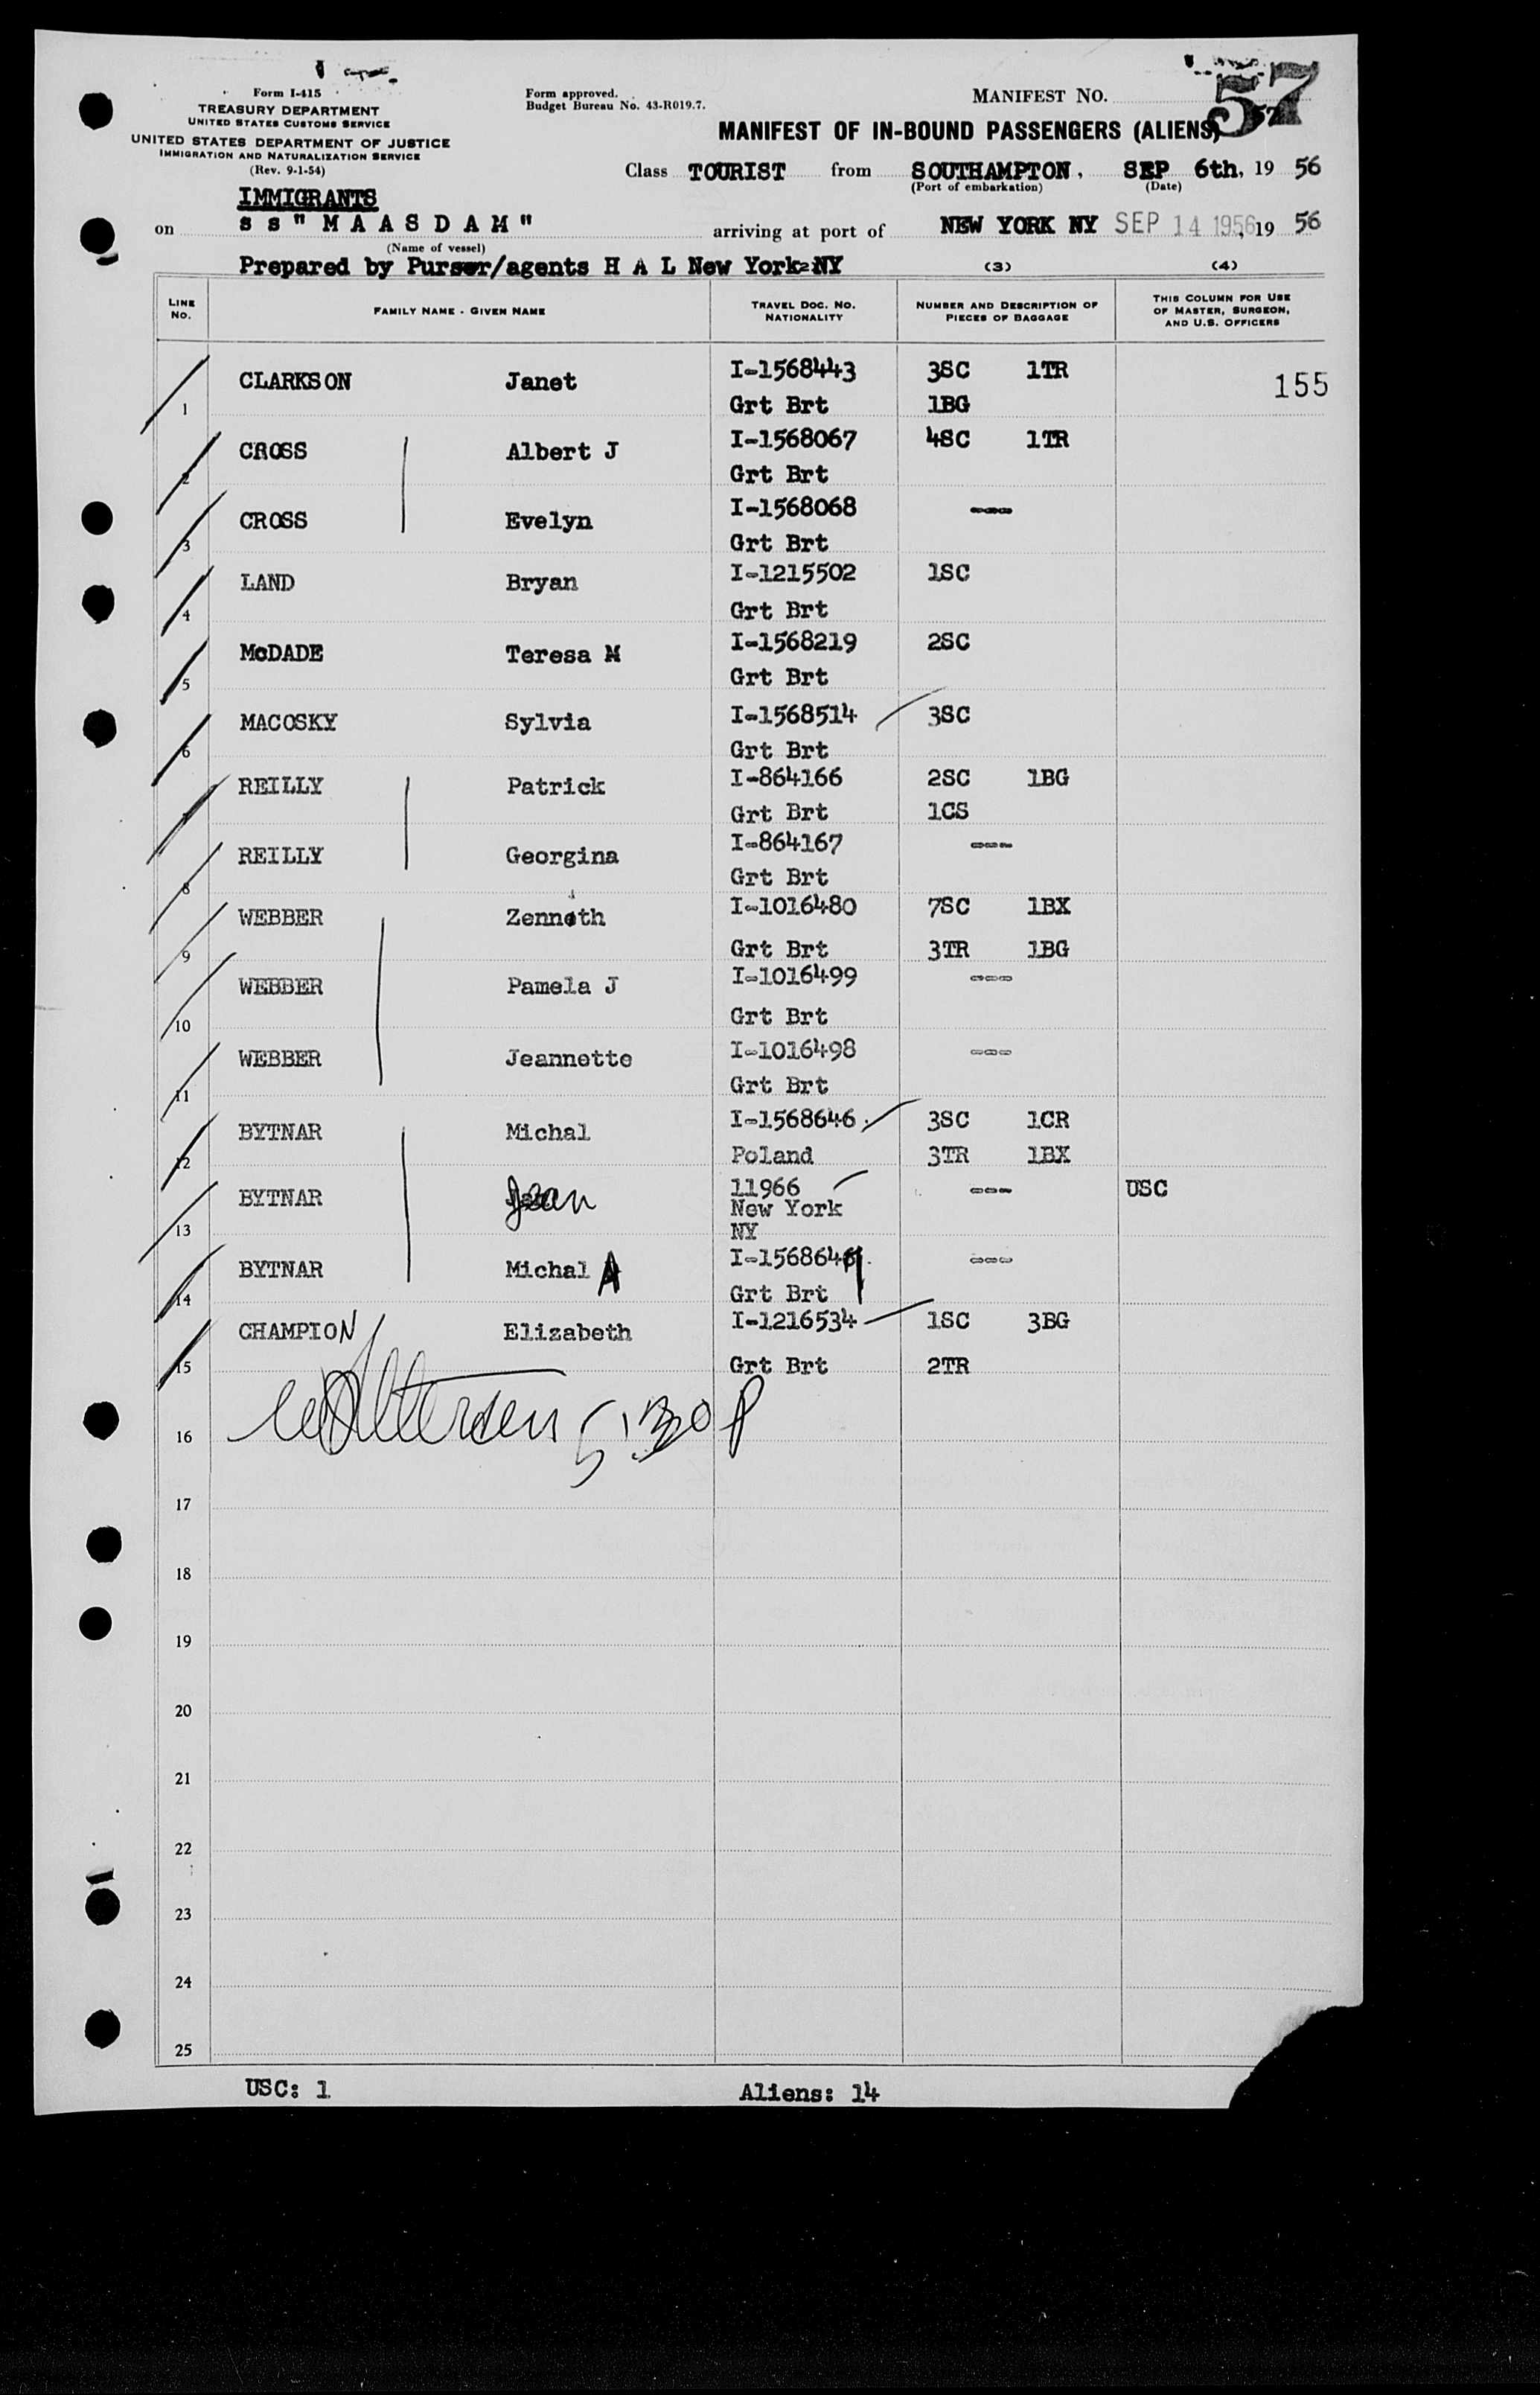 Form I-415
TREASURY DEPARTMENT
UNITED STATES CUSTOMS SERVICE
UNITED STATES DEPARTMENT OF JUSTICE
IMMIGRATION AND NATURALIZATION SERVICE
(Rev. 9-1-54)
Form approved.
Budget Bureau No. 43-R019.7.
MANIFEST NO. 57
MANIFEST OF IN-BOUND PASSENGERS (ALIENS)
Class TOURIST from SOUTHAMPTON, SEP 6th, 19 56
(Port of embarkation) (Date)
IMMIGRANTS
on s s " M A A S D A M " arriving at port of NEW YORK NY SEP 14 1956, 19 56
(Name of vessel)
Prepared by Purser/agents H A L New York NY (3) (4)
LINE NO. FAMILY NAME - GIVEN NAME TRAVEL DOC. NO. NATIONALITY NUMBER AND DESCRIPTION OF PIECES OF BAGGAGE THIS COLUMN FOR USE OF MASTER, SURGEON, AND U.S. OFFICERS
CLARKSON Janet I-1568443 3SC 1TR 155
1 Grt Brt 1BG
CROSS Albert J I-1568067 4SC 1TR
2 Grt Brt
CROSS Evelyn I-1568068 ---
3 Grt Brt
LAND Bryan I-1215502 1SC
4 Grt Brt
McDADE Teresa M I-1568219 2SC
5 Grt Brt
MACOSKY Sylvia I-1568514 3SC
6 Grt Brt
REILLY Patrick I-864166 2SC 1BG
7 Grt Brt 1CS
REILLY Georgina I-864167 ---
8 Grt Brt
WEBBER Zenneth I-1016480 7SC 1BX
9 Grt Brt 3TR 1BG
WEBBER Pamela J I-1016499 ---
10 Grt Brt
WEBBER Jeannette I-1016498 ---
11 Grt Brt
BYTNAR Michal I-1568646 3SC 1CR
12 Poland 3TR 1BX
BYTNAR Jean 11966 --- USC
New York
13 NY
BYTNAR Michal A I-156864 ---
14 Grt Brt
CHAMPION Elizabeth I-1216534 1SC 3BG
15 Grt Brt 2TR
16 5:30 P
17
18
19
20
21
22
23
24
25
USC: 1 Aliens: 14